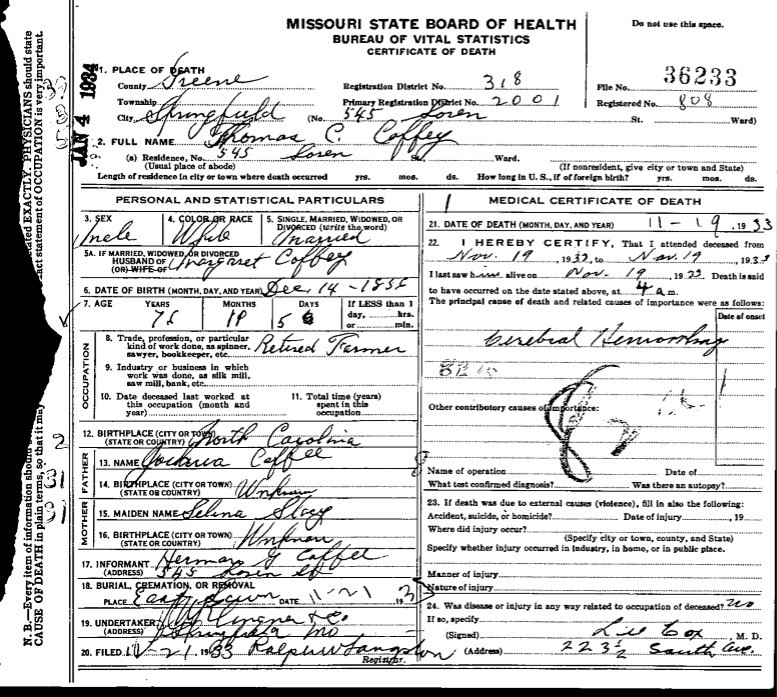 MISSOURI STATE BOARD OF HEALTH
BUREAU OF VITAL STATISTICS
CERTIFICATE OF DEATH
Do not use this space.
JAN 4 1934
1. PLACE OF DEATH
County Greene Registration District No. 318 File No. 36233
Township Primary Registration District No. 2001 Registered No. 808
City Springfield (No. 545 Loren St. Ward)
2. FULL NAME Thomas C. Coffey
(a) Residence, No. 545 Loren St. Ward.
(Usual place of abode) (If nonresident, give city or town and State)
Length of residence in city or town where death occurred yrs. mos. ds. How long in U. S., if of foreign birth? yrs. mos. ds.
PERSONAL AND STATISTICAL PARTICULARS
3. SEX 4. COLOR OR RACE 5. SINGLE, MARRIED, WIDOWED, OR
DIVORCED (write the word)
Male White Married
5A. IF MARRIED, WIDOWED, OR DIVORCED
HUSBAND OF Margaret Coffey
(OR) WIFE OF
6. DATE OF BIRTH (MONTH, DAY, AND YEAR) Dec. 14
7. AGE YEARS MONTHS DAYS If LESS than 1
day, hrs.
or min.
5
OCCUPATION
8. Trade, profession, or particular
kind of work done, as spinner,
sawyer, bookkeeper, etc. Retired Farmer
9. Industry or business in which
work was done, as silk mill,
saw mill, bank, etc.
10. Date deceased last worked at
this occupation (month and
year)
11. Total time (years)
spent in this
occupation
12. BIRTHPLACE (CITY OR TOWN)
(STATE OR COUNTRY) North Carolina
FATHER
13. NAME Joshua Coffee
14. BIRTHPLACE (CITY OR TOWN)
(STATE OR COUNTRY) Unknown
MOTHER
15. MAIDEN NAME Selina
16. BIRTHPLACE (CITY OR TOWN)
(STATE OR COUNTRY) Unknown
17. INFORMANT Herman G Coffee
(ADDRESS) 545 Loren St
18. BURIAL, CREMATION, OR REMOVAL
PLACE East Lawn DATE 11-21 193
19. UNDERTAKER
(ADDRESS) Springfield Mo
20. FILED 21, 1933 Ralph W Langston
Registrar.
MEDICAL CERTIFICATE OF DEATH
21. DATE OF DEATH (MONTH, DAY, AND YEAR) 11-19, 1933
22. I HEREBY CERTIFY, That I attended deceased from
Nov. 19, 1933, to Nov. 19, 193
I last saw him alive on Nov. 19 1933 Death is said
to have occurred on the date stated above, at 4 a m.
The principal cause of death and related causes of importance were as follows:
Date of onset
Cerebral Hemorrhag
Other contributory causes of importance:
Name of operation Date of
What test confirmed diagnosis? Was there an autopsy?
23. If death was due to external causes (violence), fill in also the following:
Accident, suicide, or homicide? Date of injury , 19
Where did injury occur?
(Specify city or town, county, and State)
Specify whether injury occurred in industry, in home, or in public place.
Manner of injury
Nature of injury
24. Was disease or injury in any way related to occupation of deceased? no
If so, specify
(Signed) Lee Cox, M. D.
(Address) 223½ South Ave.
N. B.—Every item of information should
CAUSE OF DEATH in plain terms, so that it may
EXACTLY. PHYSICIANS should state
statement of OCCUPATION is very important.